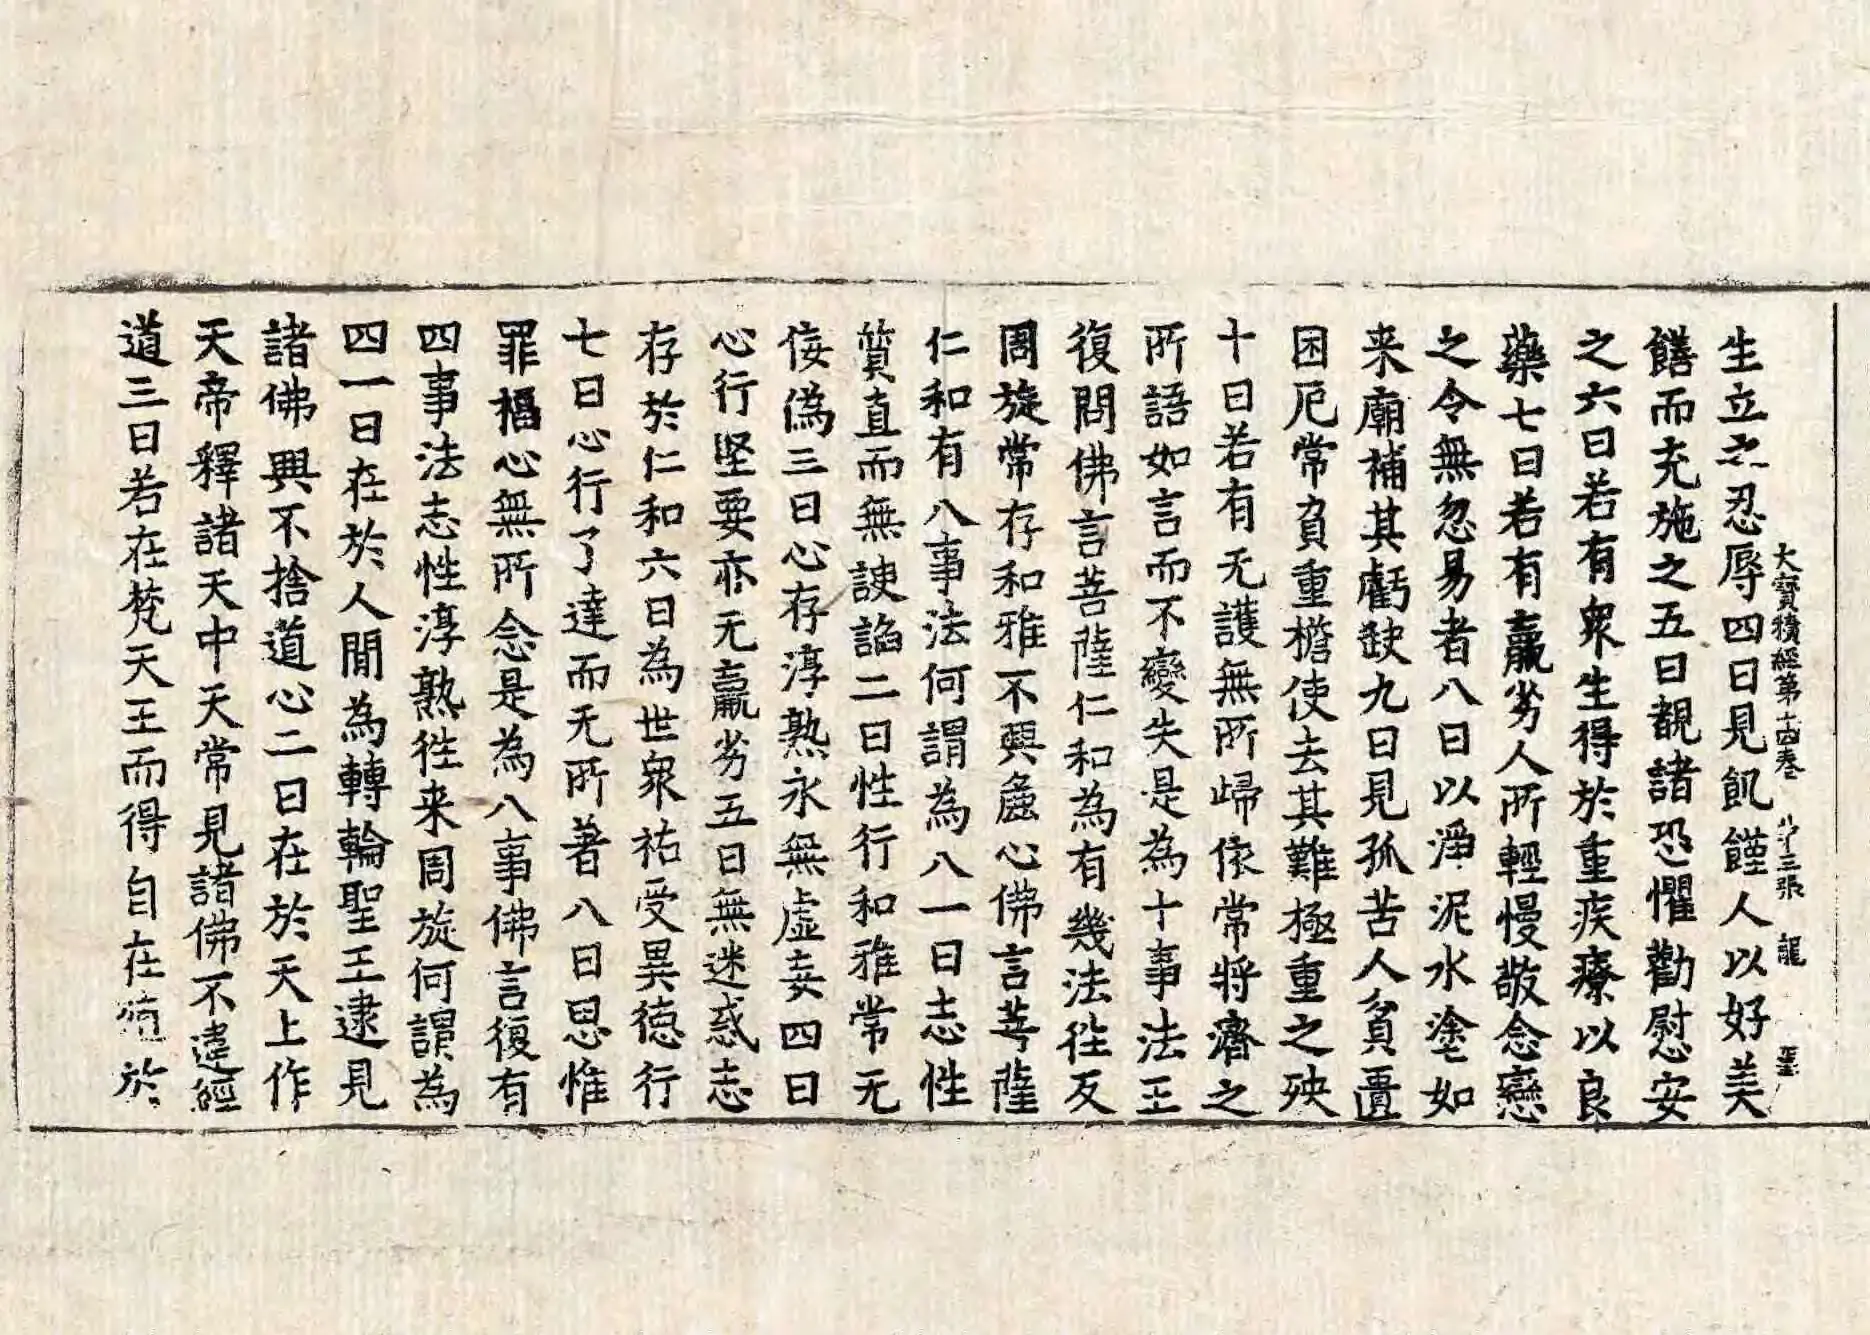 大寶積經第十四卷 第十三張 龍
生立之忍辱四曰見飢饉人以好美
饍而充施之五曰覩諸恐懼勸慰安
之六曰若有衆生得於重疾療以良
藥七曰若有羸劣人所輕慢敬念戀
之令無忽易者八曰以淨泥水塗如
来廟補其虧缺九曰見孤苦人貧匱
困厄常負重擔使去其難極重之殃
十曰若有无護無所歸依常將濟之
所語如言而不變失是為十事法王
復問佛言菩薩仁和為有幾法往反
周旋常存和雅不興麁心佛言菩薩
仁和有八事法何謂為八一曰志性
質直而無諛諂二曰性行和雅常无
佞偽三曰心存淳熟永無虛妄四曰
心行堅要亦无羸劣五曰無迷惑志
存於仁和六曰為世衆祐受異德行
七曰心行了達而无所著八曰思惟
罪福心無所念是為八事佛言復有
四事法志性淳熟往来周旋何謂為
四一曰在於人間為轉輪聖王逮見
諸佛興不捨道心二曰在於天上作
天帝釋諸天中天常見諸佛不違經
道三曰若在梵天王而得自在 於